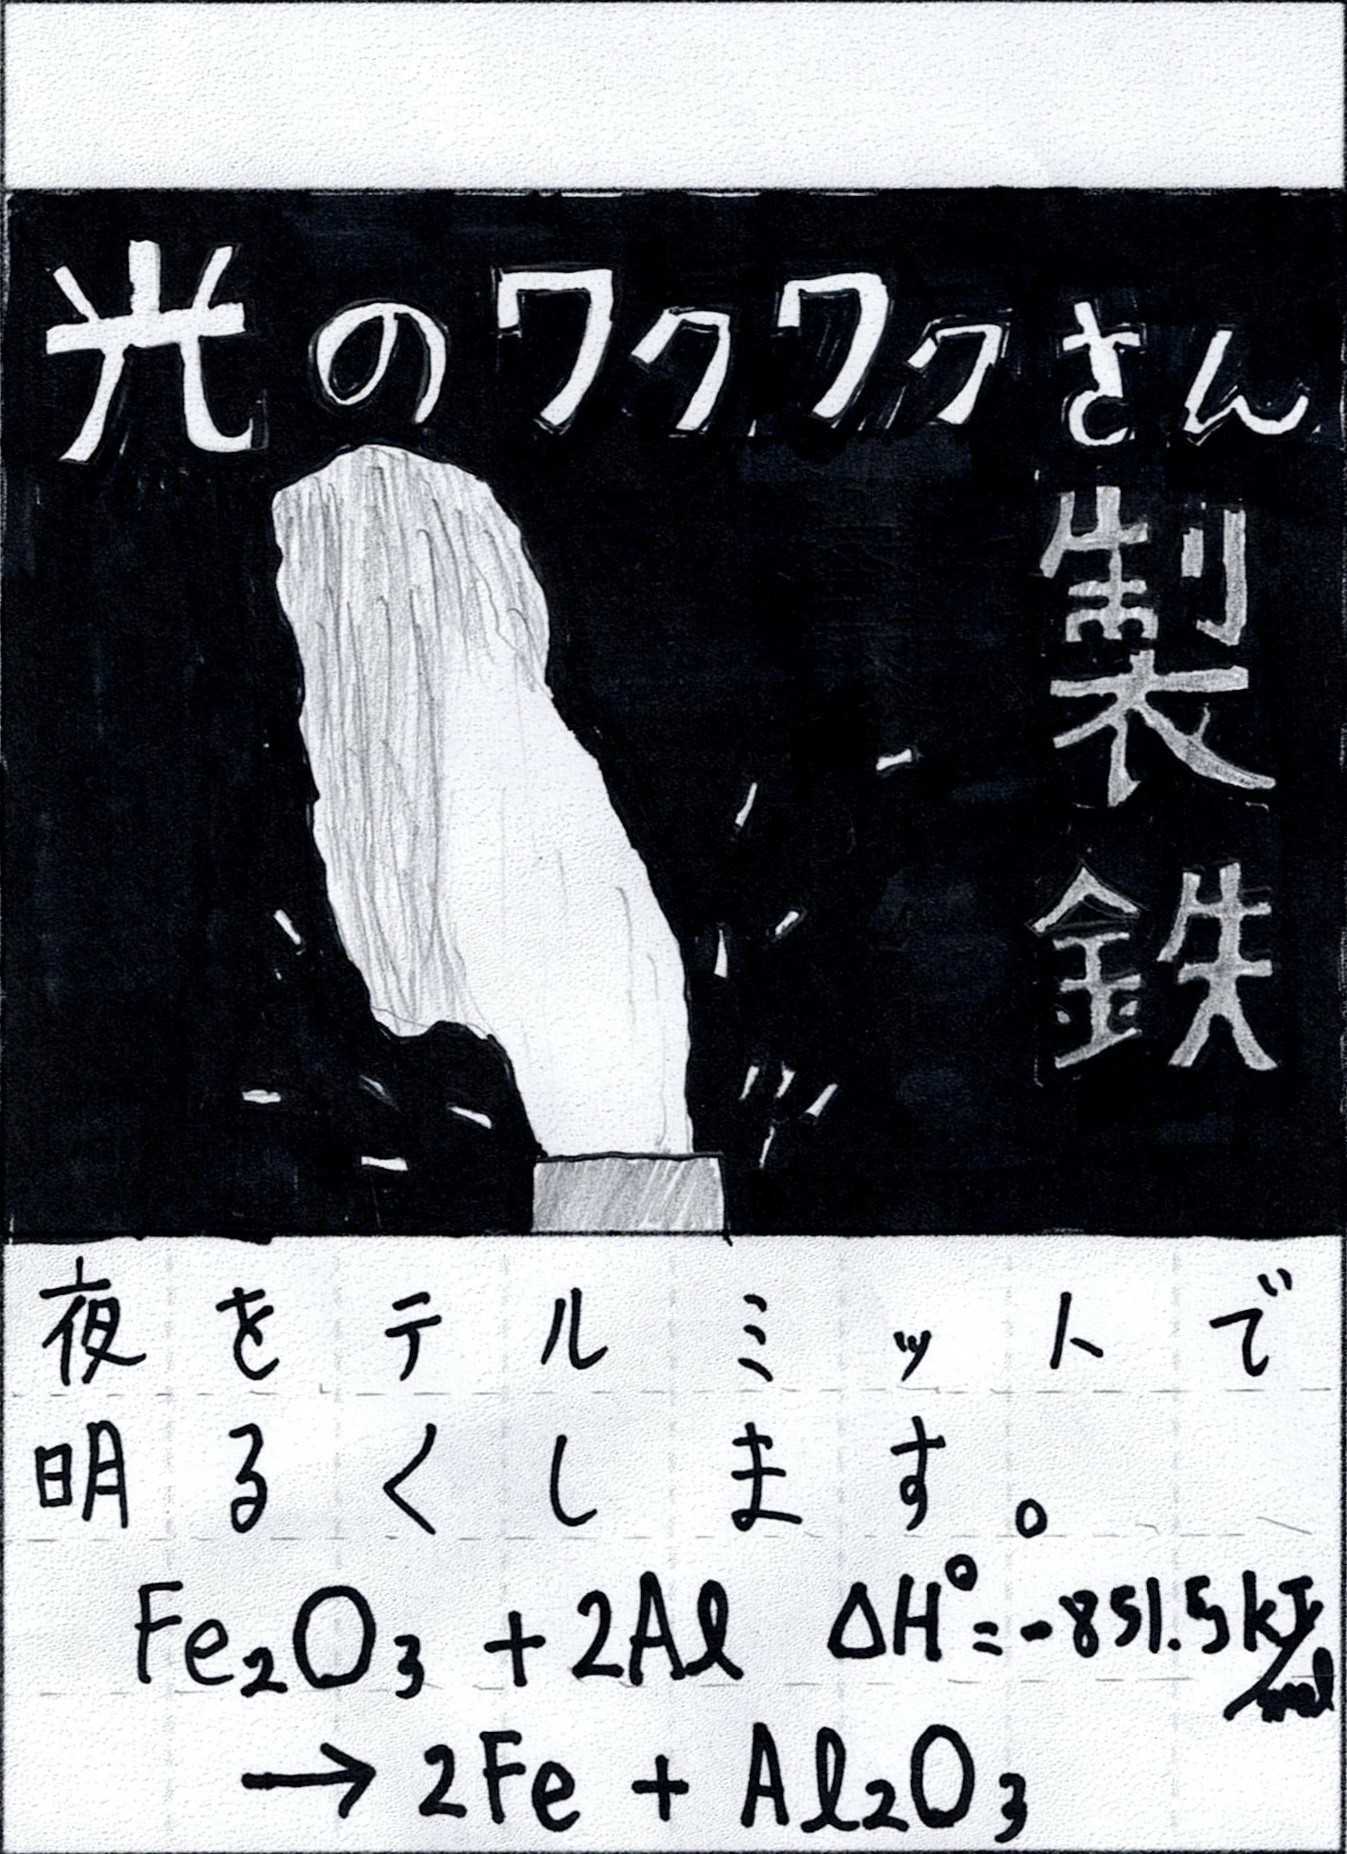 光のワクワクさん
製鉄
夜をテルミットで
明るくします。
Fe₂O₃ + 2Al ΔH°=-851.5kJ/mol
→ 2Fe + Al₂O₃